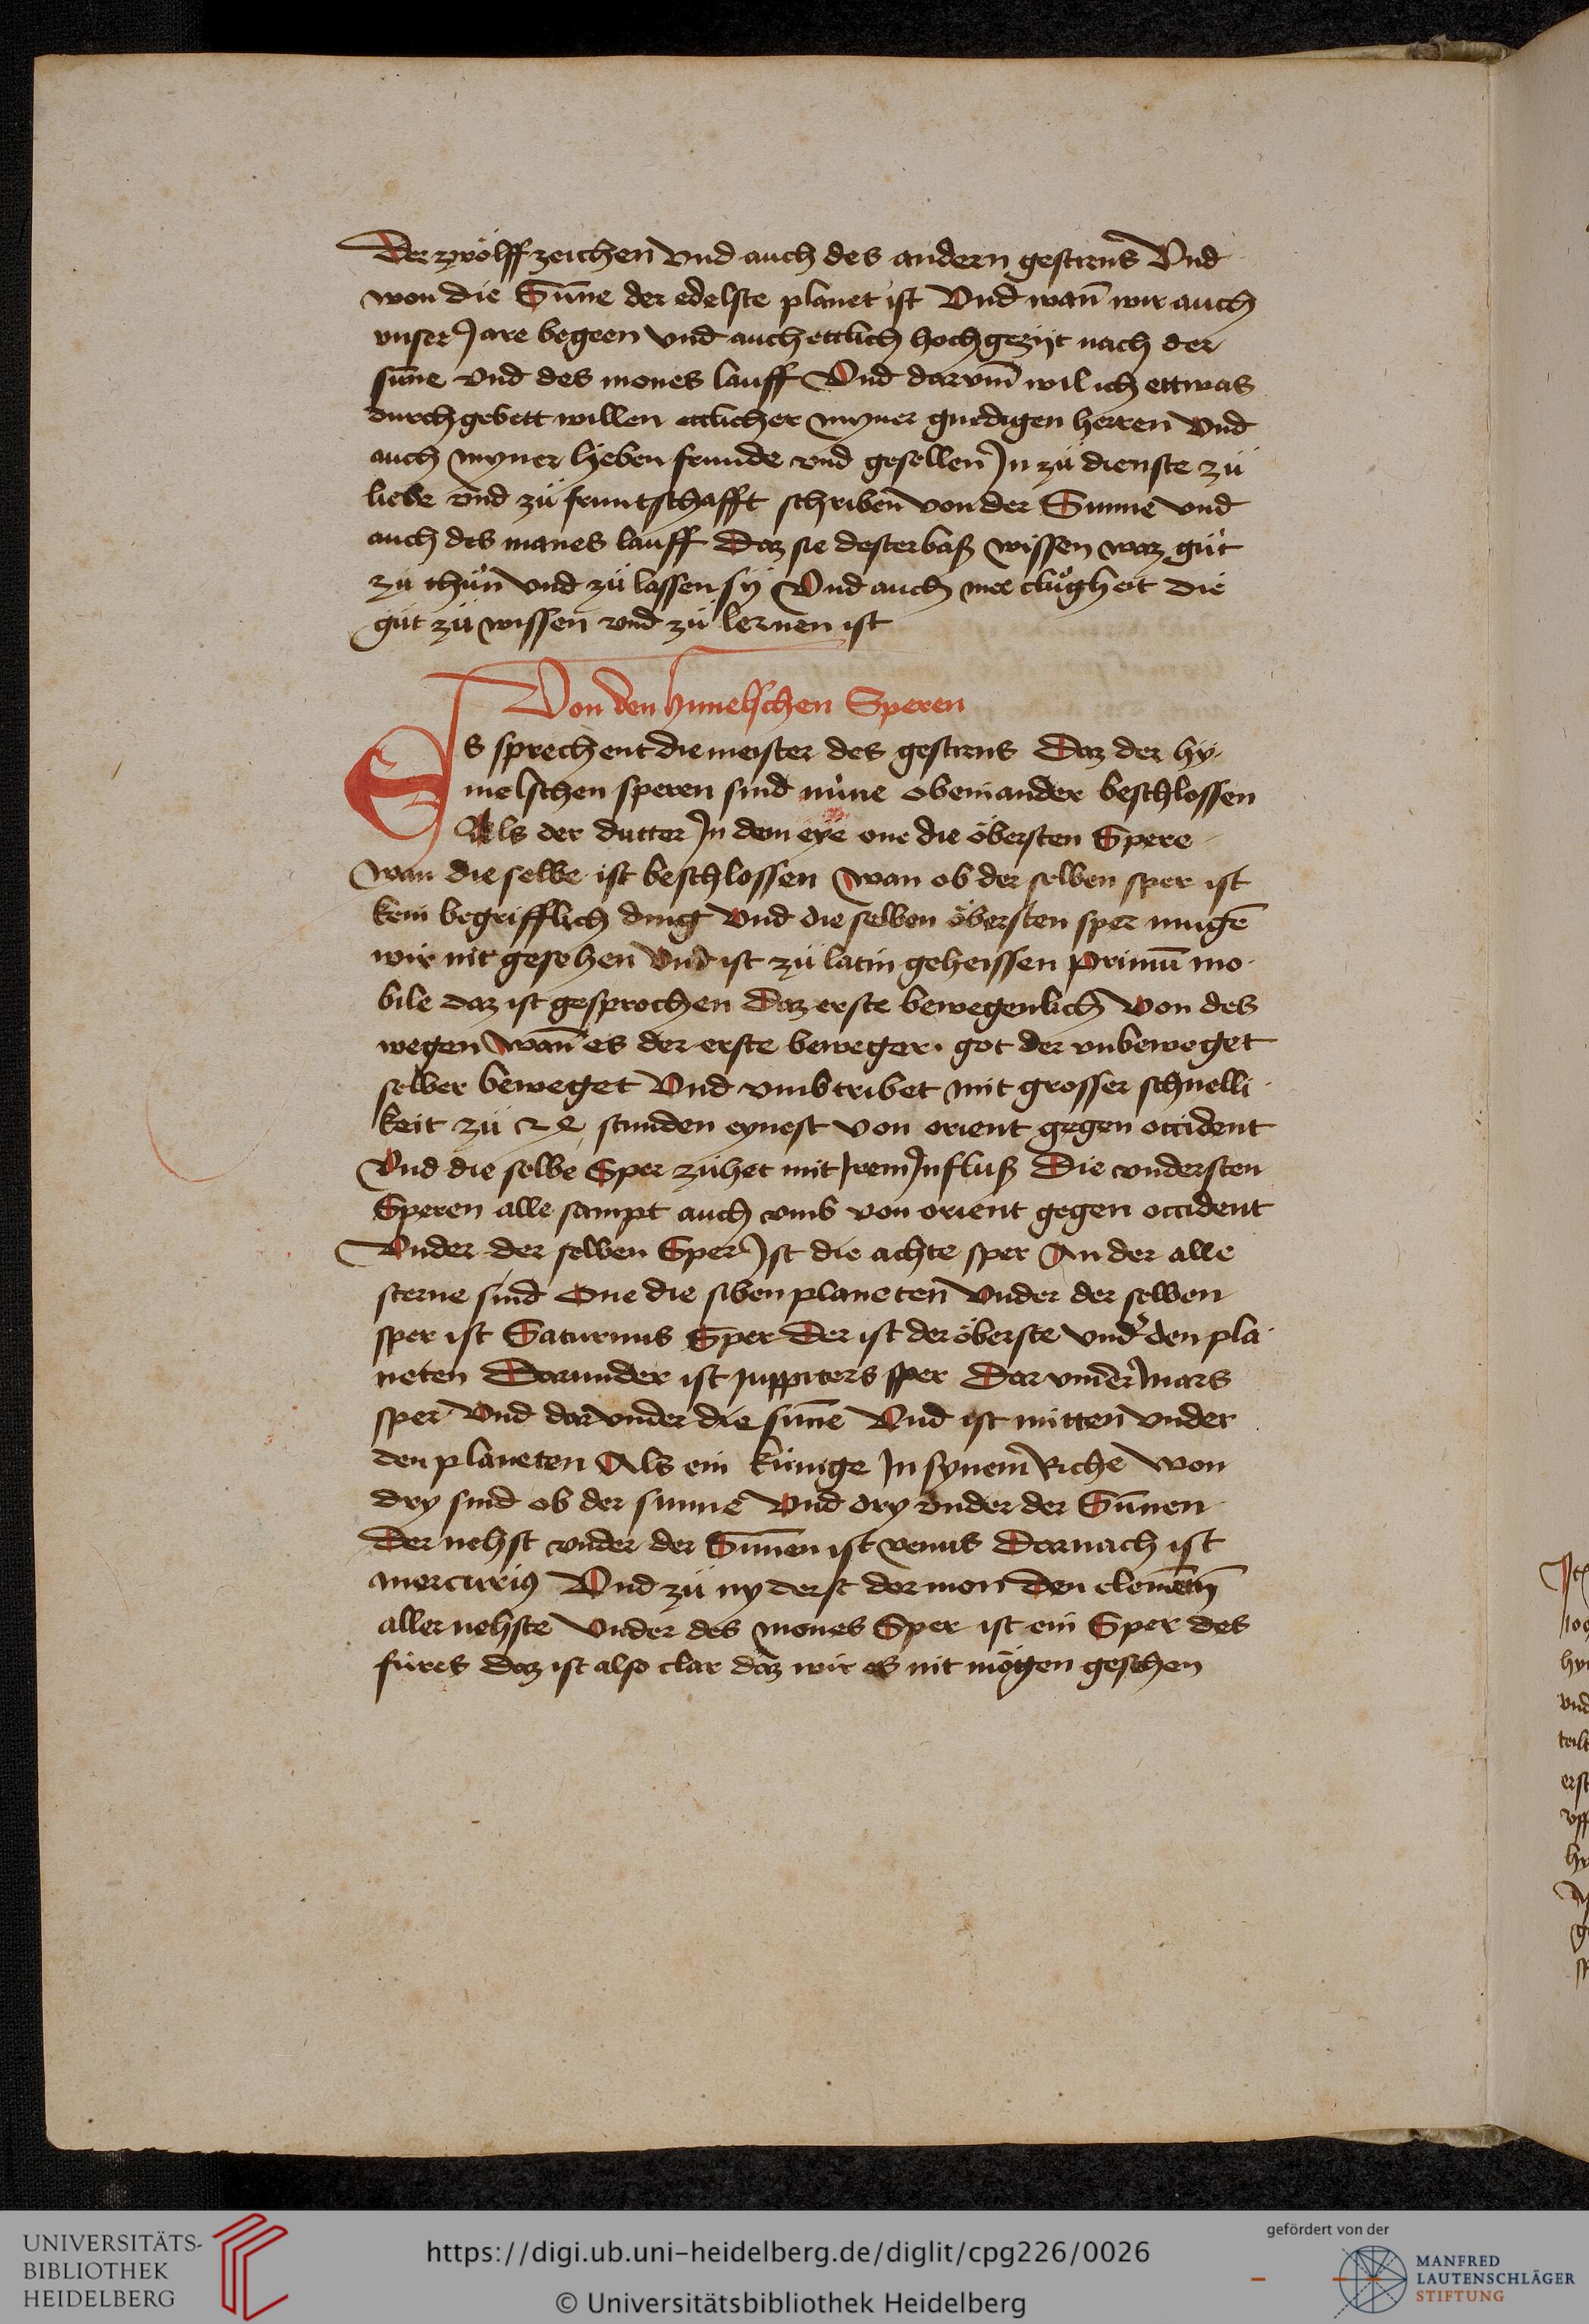 Der zwölff zeichen vnd auch des andern gestirns Vnd
won die Sūne der edelste planet ist Vnd wañ wir auch
vnser Jare begeen vnd auch ettlich hochgezijt nach der
sūne vnd des mones lauff Vnd darvm̄ wil ich ettwas
durch gebett willen ettlicher myner gnedigen herren vnd
auch myner lieben frunde vnd gesellen Jn zü dienste zü
liebe vnd zü fruntschafft schriben von der Sunne vnd
auch des manes lauff Daz sie desterbaß wissen waz güt
zü thün vnd zü lassen sÿ Vnd auch mee clůgheit die
güt zü wissen vnd zü lernen ist
Von den himelschen Speren
Es sprechent die meister des gestirns Daz der hÿ-
melschen speren sind nüne obeinander beschlossen
Als der dutter Jn dem eye one die öbersten Spere
wan die selbe ist beschlossen wan ob der selben sper ist
kein begrifflich ding Vnd die selben öbersten sper mugē
wir nit gesehen Vnd ist zü latin geheissen primū mo-
bile daz ist gesprochen Daz erste bewegenlich Von des
wegen wañ es der erste beweger. got der vnbeweget
selber beweget Vnd vmbtribet mit grosser schnelli-
keit zü 24 stunden eynest von orient gegen occident
Vnd die selbe Sper zühet mit Jrem Jnfluß Die vndersten
Speren alle sampt auch vmb von orient gegen occident
Vnder der selben Sper Jst die achte sper An der alle
sterne sind One die siben planeten Vnder der selben
sper ist Saturnus Sper Der ist der öberste vnd' den pla-
neten Darunder ist juppiters sper Darvnder mars
sper Vnd darvnder die sūne Vnd ist mitten vnder
den planeten Als ein künige Jn synem Riche won
dry sind ob der sunne Vnd dry vnder der Sūnen
Der nehst vnder der Sūnen ist venus Darnach ist
mercurius Vnd zü nyderst der mon Den elemētñ
aller nehste Vnder des mones Sper ist ein Sper des
füres daz ist also clar daz wir es nit mögen gesehen
UNIVERSITÄTS-
BIBLIOTHEK
HEIDELBERG
https://digi.ub.uni-heidelberg.de/diglit/cpg226/0026
© Universitätsbibliothek Heidelberg
gefördert von der
MANFRED
LAUTENSCHLÄGER
STIFTUNG